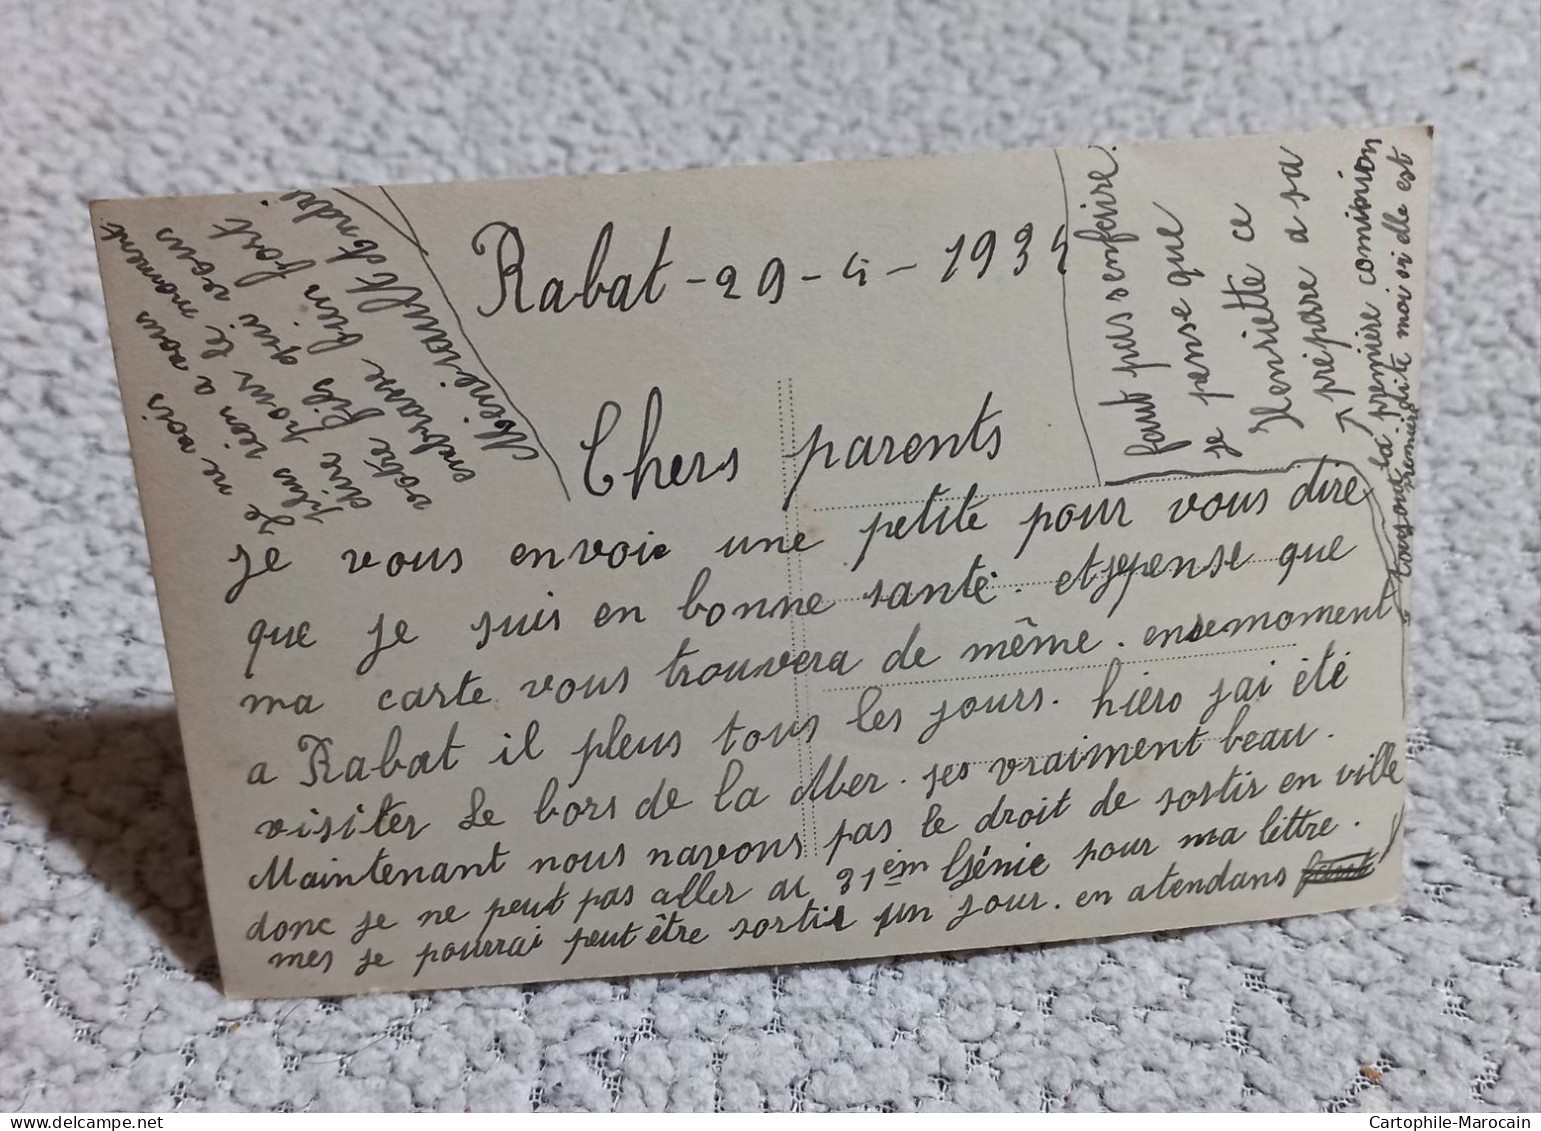 Rabat - 29 - 4 - 1934
Chers parents
je vous envoie une petite pour vous dire
que je suis en bonne santé. et je pense que
ma carte vous trouvera de même. en se moment
a Rabat il pleus tous les jours. hiero jai été
visiter le bors de la Mer. ses vraiment beau.
Maintenant nous navons pas le droit de sortir en ville
donc je ne peut pas aller au 31 èm Génie pour ma littre.
mes je pourrai peut être sortir un jour. en atendans
faut pas s'enfaire.
je pense que
Henriette ce
prépare a sa
première comisnion
toujour la première dite moi si elle est
Je ne vois
plus rien a vous
dire pour le moment
votre fils qui vous
embrasse bien fort
André
Cartophile-Marocain